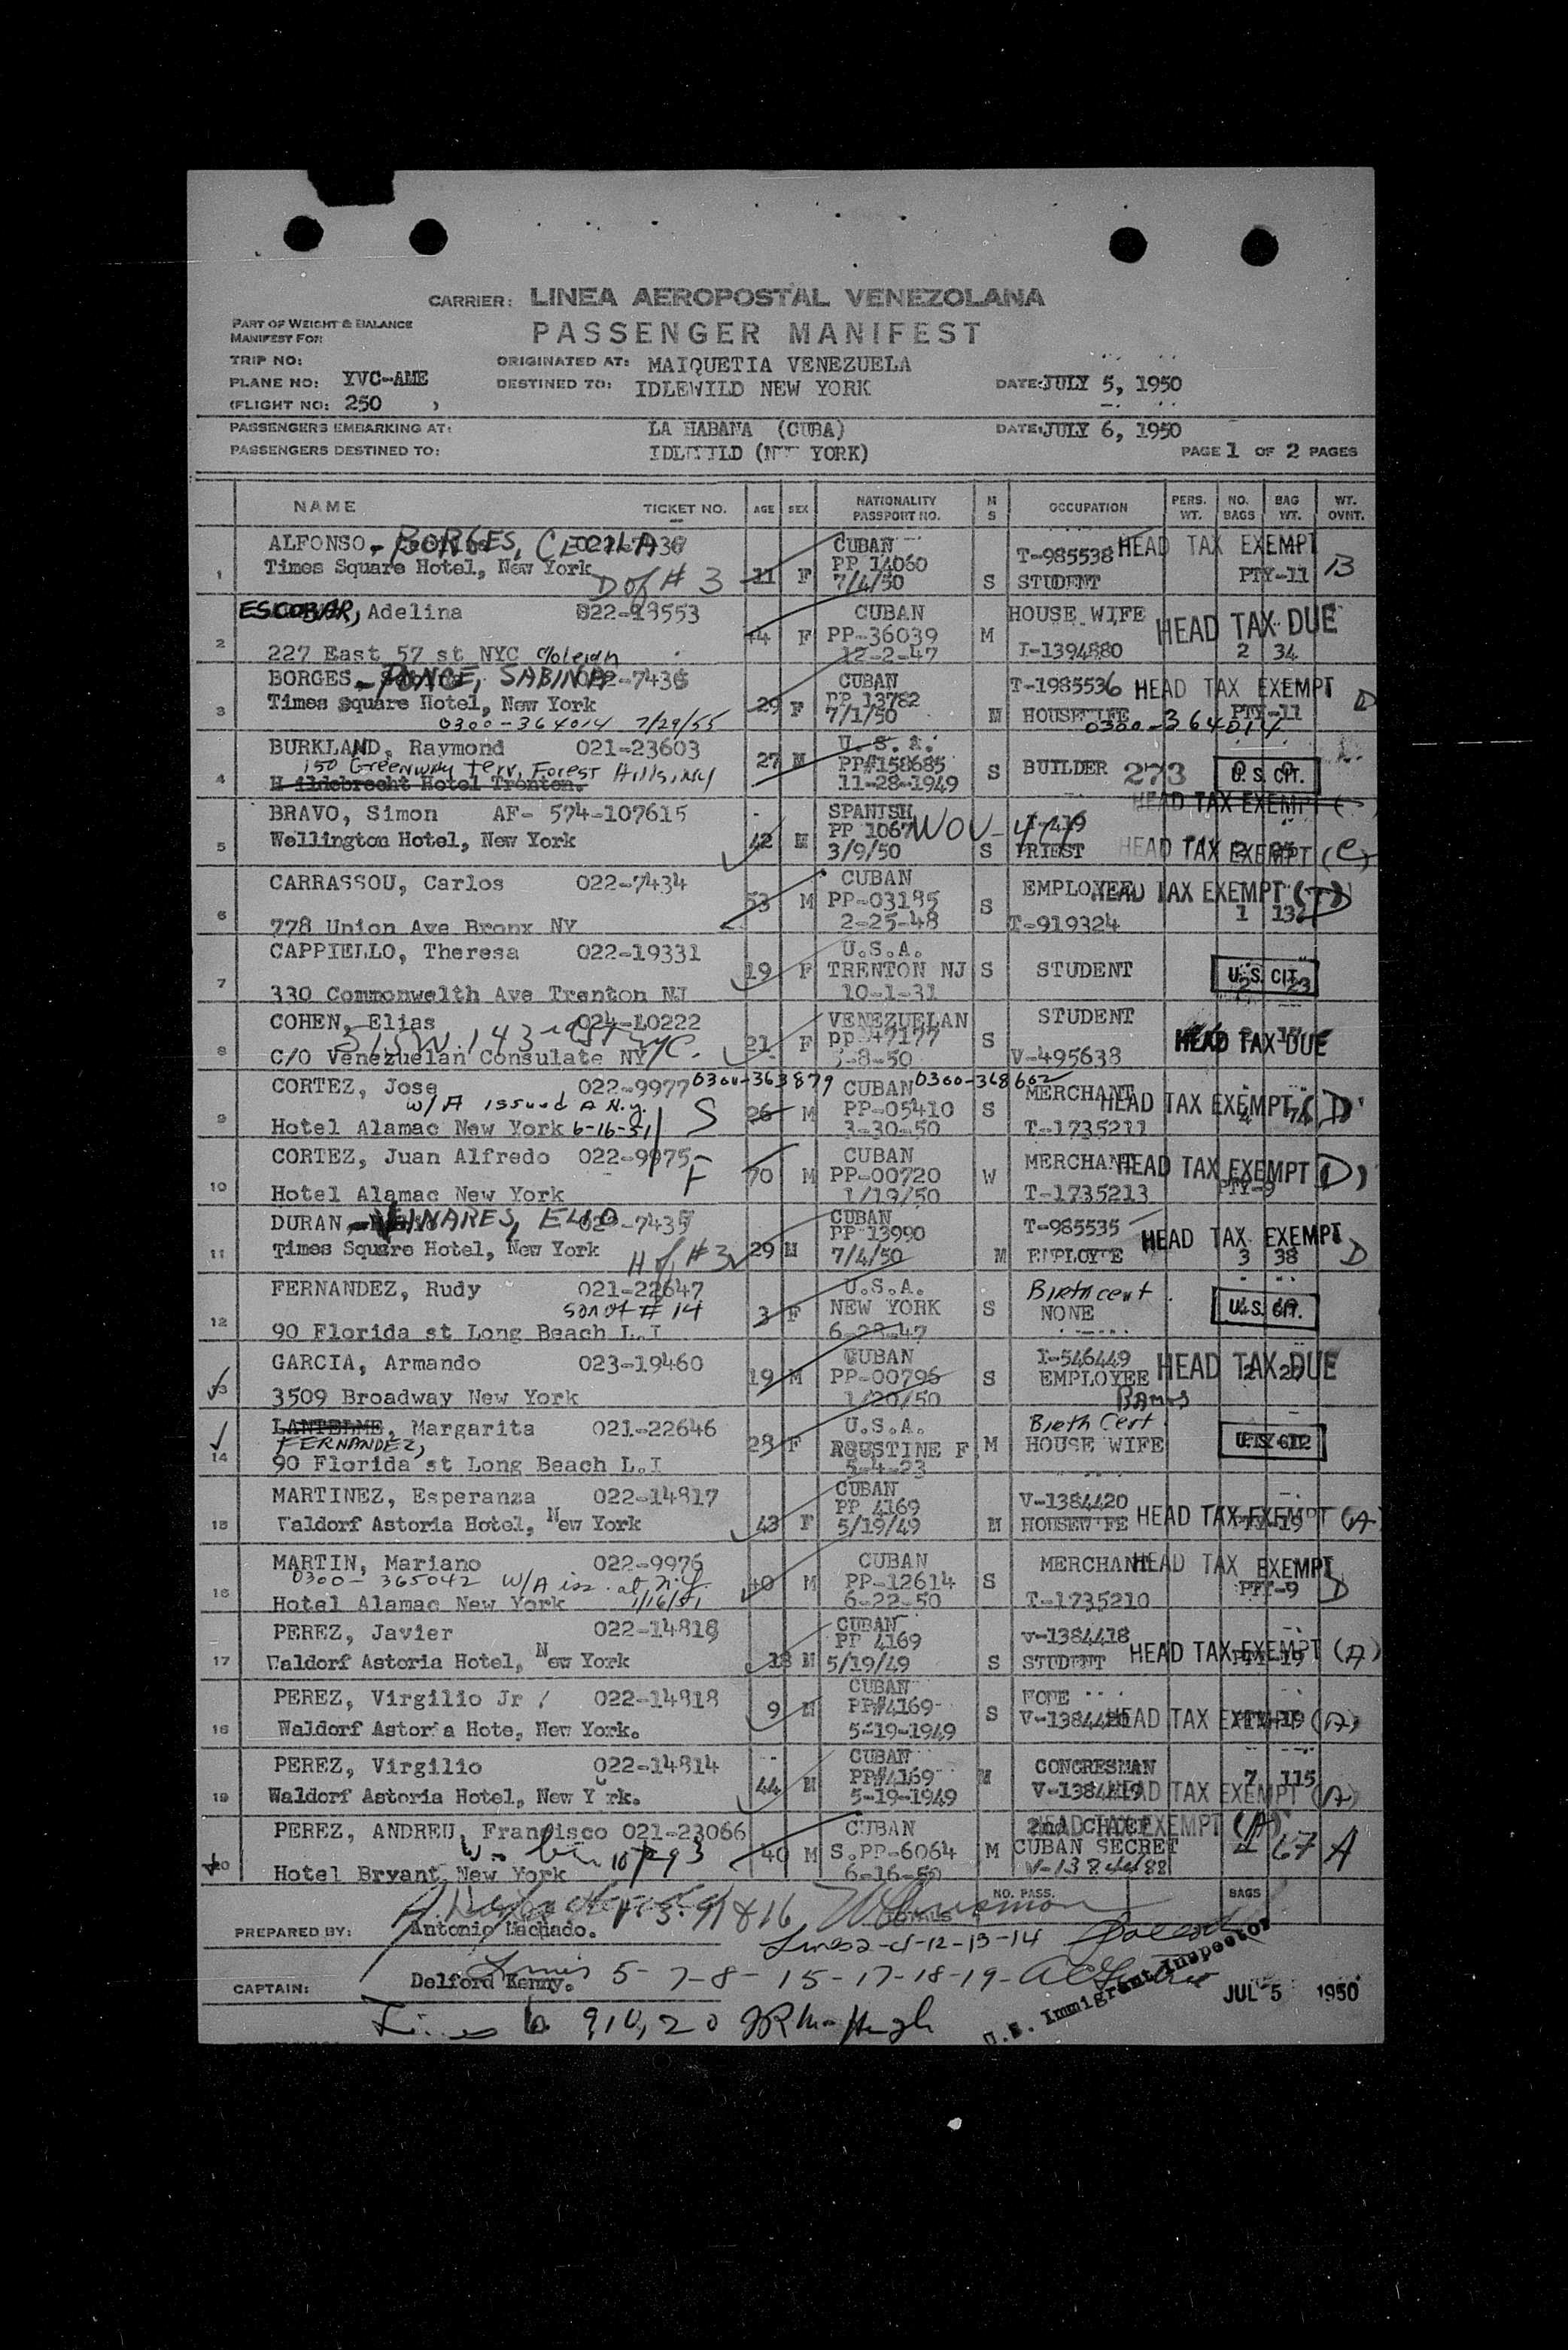 CARRIER: LINEA AEROPOSTAL VENEZOLANA
PART OF WEIGHT & BALANCE
MANIFEST FOR:
PASSENGER MANIFEST
TRIP NO:
ORIGINATED AT: MAIQUETIA VENEZUELA
PLANE NO: YVC-AME
DESTINED TO: IDLEWILD NEW YORK
DATE: JULY 5, 1950
(FLIGHT NO: 250 )
PASSENGERS EMBARKING AT: LA HABANA (CUBA) DATE: JULY 6, 1950
PASSENGERS DESTINED TO: (NEW YORK) PAGE 1 OF 2 PAGES
NAME TICKET NO. AGE SEX NATIONALITY PASSPORT NO. M S OCCUPATION PERS. WT. NO. BAGS BAG WT. WT. OVNT.
ALFONSO - BORGES, CECILA CUBAN HEAD TAX EXEMPT
Times Square Hotel, New York PP 14060 T-985538
1 D of # 3 11 F 7/4/50 S STUDENT PTY-11 B
ESCOBAR, Adelina 022-19553 CUBAN HOUSE WIFE HEAD TAX DUE
2 44 F PP-36039 M 2 34
227 East 57 st NYC 12-2-47 I-1394880
BORGES - PONCE, SABINA 022-7436 CUBAN T-1985536 HEAD TAX EXEMPT D
3 Times Square Hotel, New York 29 F PP 13782 PTY-11
0300-364014 7/29/55 7/1/50 M HOUSEWIFE 0300-364014
BURKLAND, Raymond 021-23603 U.S.A.
150 Greenway Terr, Forest Hills, NY 27 M PP#158685 S BUILDER 273 U.S. CIT.
4 Hildebrecht Hotel Trenton. 11-28-1949
HEAD TAX EXEMPT
BRAVO, Simon AF- 574-107615 SPANISH
5 Wellington Hotel, New York 42 M PP 1067 WOV-474
3/9/50 S PRIEST HEAD TAX EXEMPT (C)
CARRASSOU, Carlos 022-7434 CUBAN EMPLOYEE HEAD TAX EXEMPT (D)
6 53 M PP-03185 S 1
778 Union Ave Bronx NY 2-25-48 T-919324
CAPPIELLO, Theresa 022-19331 U.S.A.
7 19 F TRENTON NJ S STUDENT U.S. CIT.
330 Commonwelth Ave Trenton NJ 10-1-31
COHEN, Elias 024-10222 VENEZUELAN STUDENT
515 W. 143 st NYC. 21 F pp 47177 S HEAD TAX DUE
8 C/O Venezuelan Consulate NY V-495638
CORTEZ, Jose 022-9977 0300-363879 CUBAN 0300-368602 MERCHANT
9 W/A issued A N.Y. S 26 M PP-05410 S HEAD TAX EXEMPT (D)
Hotel Alamac New York 6-16-51 3-30-50 T-1735211
CORTEZ, Juan Alfredo 022-9975 CUBAN MERCHANT HEAD TAX EXEMPT (D)
10 F 70 M PP-00720 W PTY-9
Hotel Alamac New York 1/19/50 T-1735213
DURAN - LINARES, ELIO CUBAN T-985535
11 Times Square Hotel, New York PP 13990 HEAD TAX EXEMPT
H of #3 29 M 7/4/50 M EMPLOYEE 3 38 D
FERNANDEZ, Rudy 021-22647 U.S.A. Birth cert.
12 son of # 14 3 F NEW YORK S NONE U.S. CIT.
90 Florida st Long Beach L.I 6-28-47
GARCIA, Armando 023-19460 CUBAN I-546449 HEAD TAX DUE
13 19 M PP-00796 S EMPLOYEE
3509 Broadway New York 1/20/50
LANTERME, Margarita 021-22646 U.S.A. Birth Cert
14 FERNANDEZ, 28 F AGUSTINE F M HOUSE WIFE
90 Florida st Long Beach L.I 5-4-23
MARTINEZ, Esperanza 022-14817 CUBAN V-1384420
15 Waldorf Astoria Hotel, New York 43 F PP 4169 HEAD TAX EXEMPT (A)
5/19/49 M HOUSEWIFE PTY-19
MARTIN, Mariano 022-9976 CUBAN MERCHANT HEAD TAX EXEMPT
16 0300-365042 W/A iss. at N.Y. 40 M PP-12614 S PTY-9 D
Hotel Alamac New York 1/16/51 6-22-50 T-1735210
PEREZ, Javier 022-14818 CUBAN V-1384418
17 Waldorf Astoria Hotel, New York 18 M PP 4169 HEAD TAX EXEMPT (A)
5/19/49 S STUDENT PTY-19
PEREZ, Virgilio Jr 022-14818 CUBAN NONE
18 Waldorf Astoria Hote, New York. 9 M PP#4169 S HEAD TAX EXEMPT (A)
5-19-1949
PEREZ, Virgilio 022-14814 CUBAN CONGRESMAN
19 Waldorf Astoria Hotel, New York. 44 M PP#4169 M V-1384419 7 115
5-19-1949 HEAD TAX EXEMPT (A)
PEREZ, ANDREU, Francisco 021-23066 CUBAN HEAD TAX EXEMPT (A)
20 40 M S.PP-6064 M CUBAN SECRET 67 A
Hotel Bryant New York 6-16-50
NO. PASS. BAGS
PREPARED BY: Antonio Machado. 1.3.9 11 & 16
Lines 2-4-12-13-14
CAPTAIN: Delford Kenny. Lines 5-7-8-15-17-18-19-
U.S. Immigrant Inspector JUL 5 1950
Lines 6 9, 10, 20